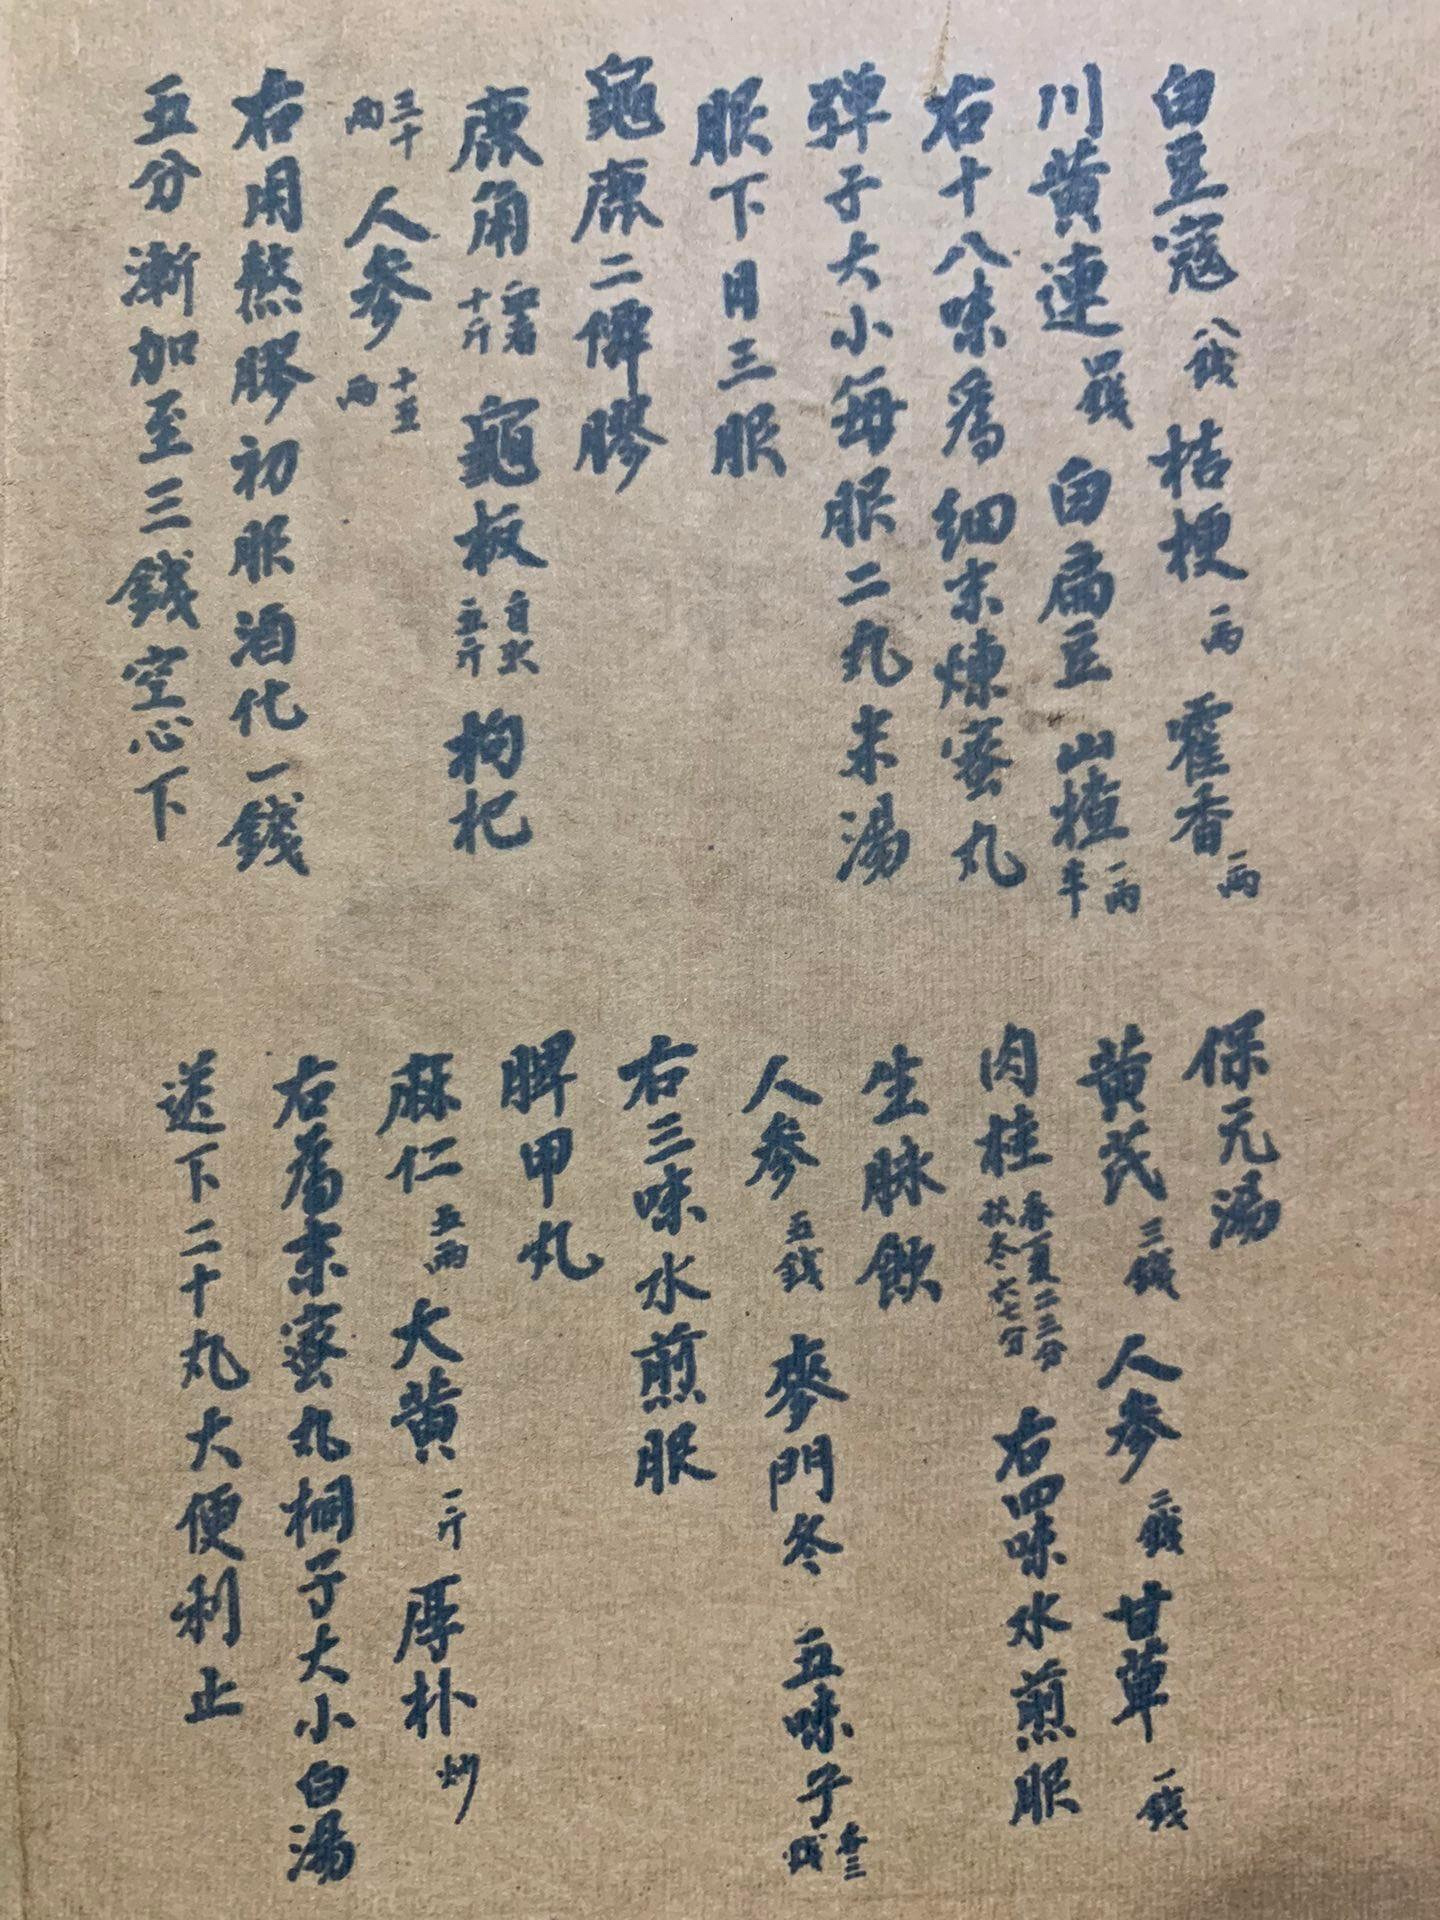 白豆寇 八錢 桔梗 一兩 霍香 一兩
川黃連 四錢 白扁豆 山楂 一兩半
右十八味為細末煉蜜丸
彈子大小每服二丸米湯
服下日三服
龜鹿二僊膠
鹿角 血者十斤 龜板 自水五斤 枸杞
三十兩 人參 十五兩
右用熬膠初服酒化一錢
五分漸加至三錢空心下
保元湯
黃芪 三錢 人參 二錢 甘草 一錢
肉桂 春夏二三分秋冬六七分 右四味水煎服
生脉飲
人參 五錢 麥門冬 五味子 各三錢
右三味水煎服
脾甲丸
麻仁 五兩 大黃 一斤 厚朴 炒
右為末蜜丸桐子大小白湯
送下二十丸大便利止